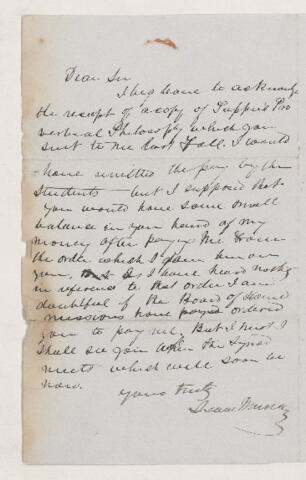 Dear Sir
I beg leave to acknowledge
the receipt of a copy of Tupper's Pro
verbial Philosophy which you
sent to me last Fall. I would
have remitted the pay by the
students — but I supposed that
you would have some small
balance in your hand of my
money after paying Mr
the order which I gave him on
you, but as I have heard nothing
in reference to that order I am
doubtful if the Board of
missions have ordered
you to pay me. But I trust I
shall see you when the Synod
meets which will soon be
now.
Yours truly
Isaac